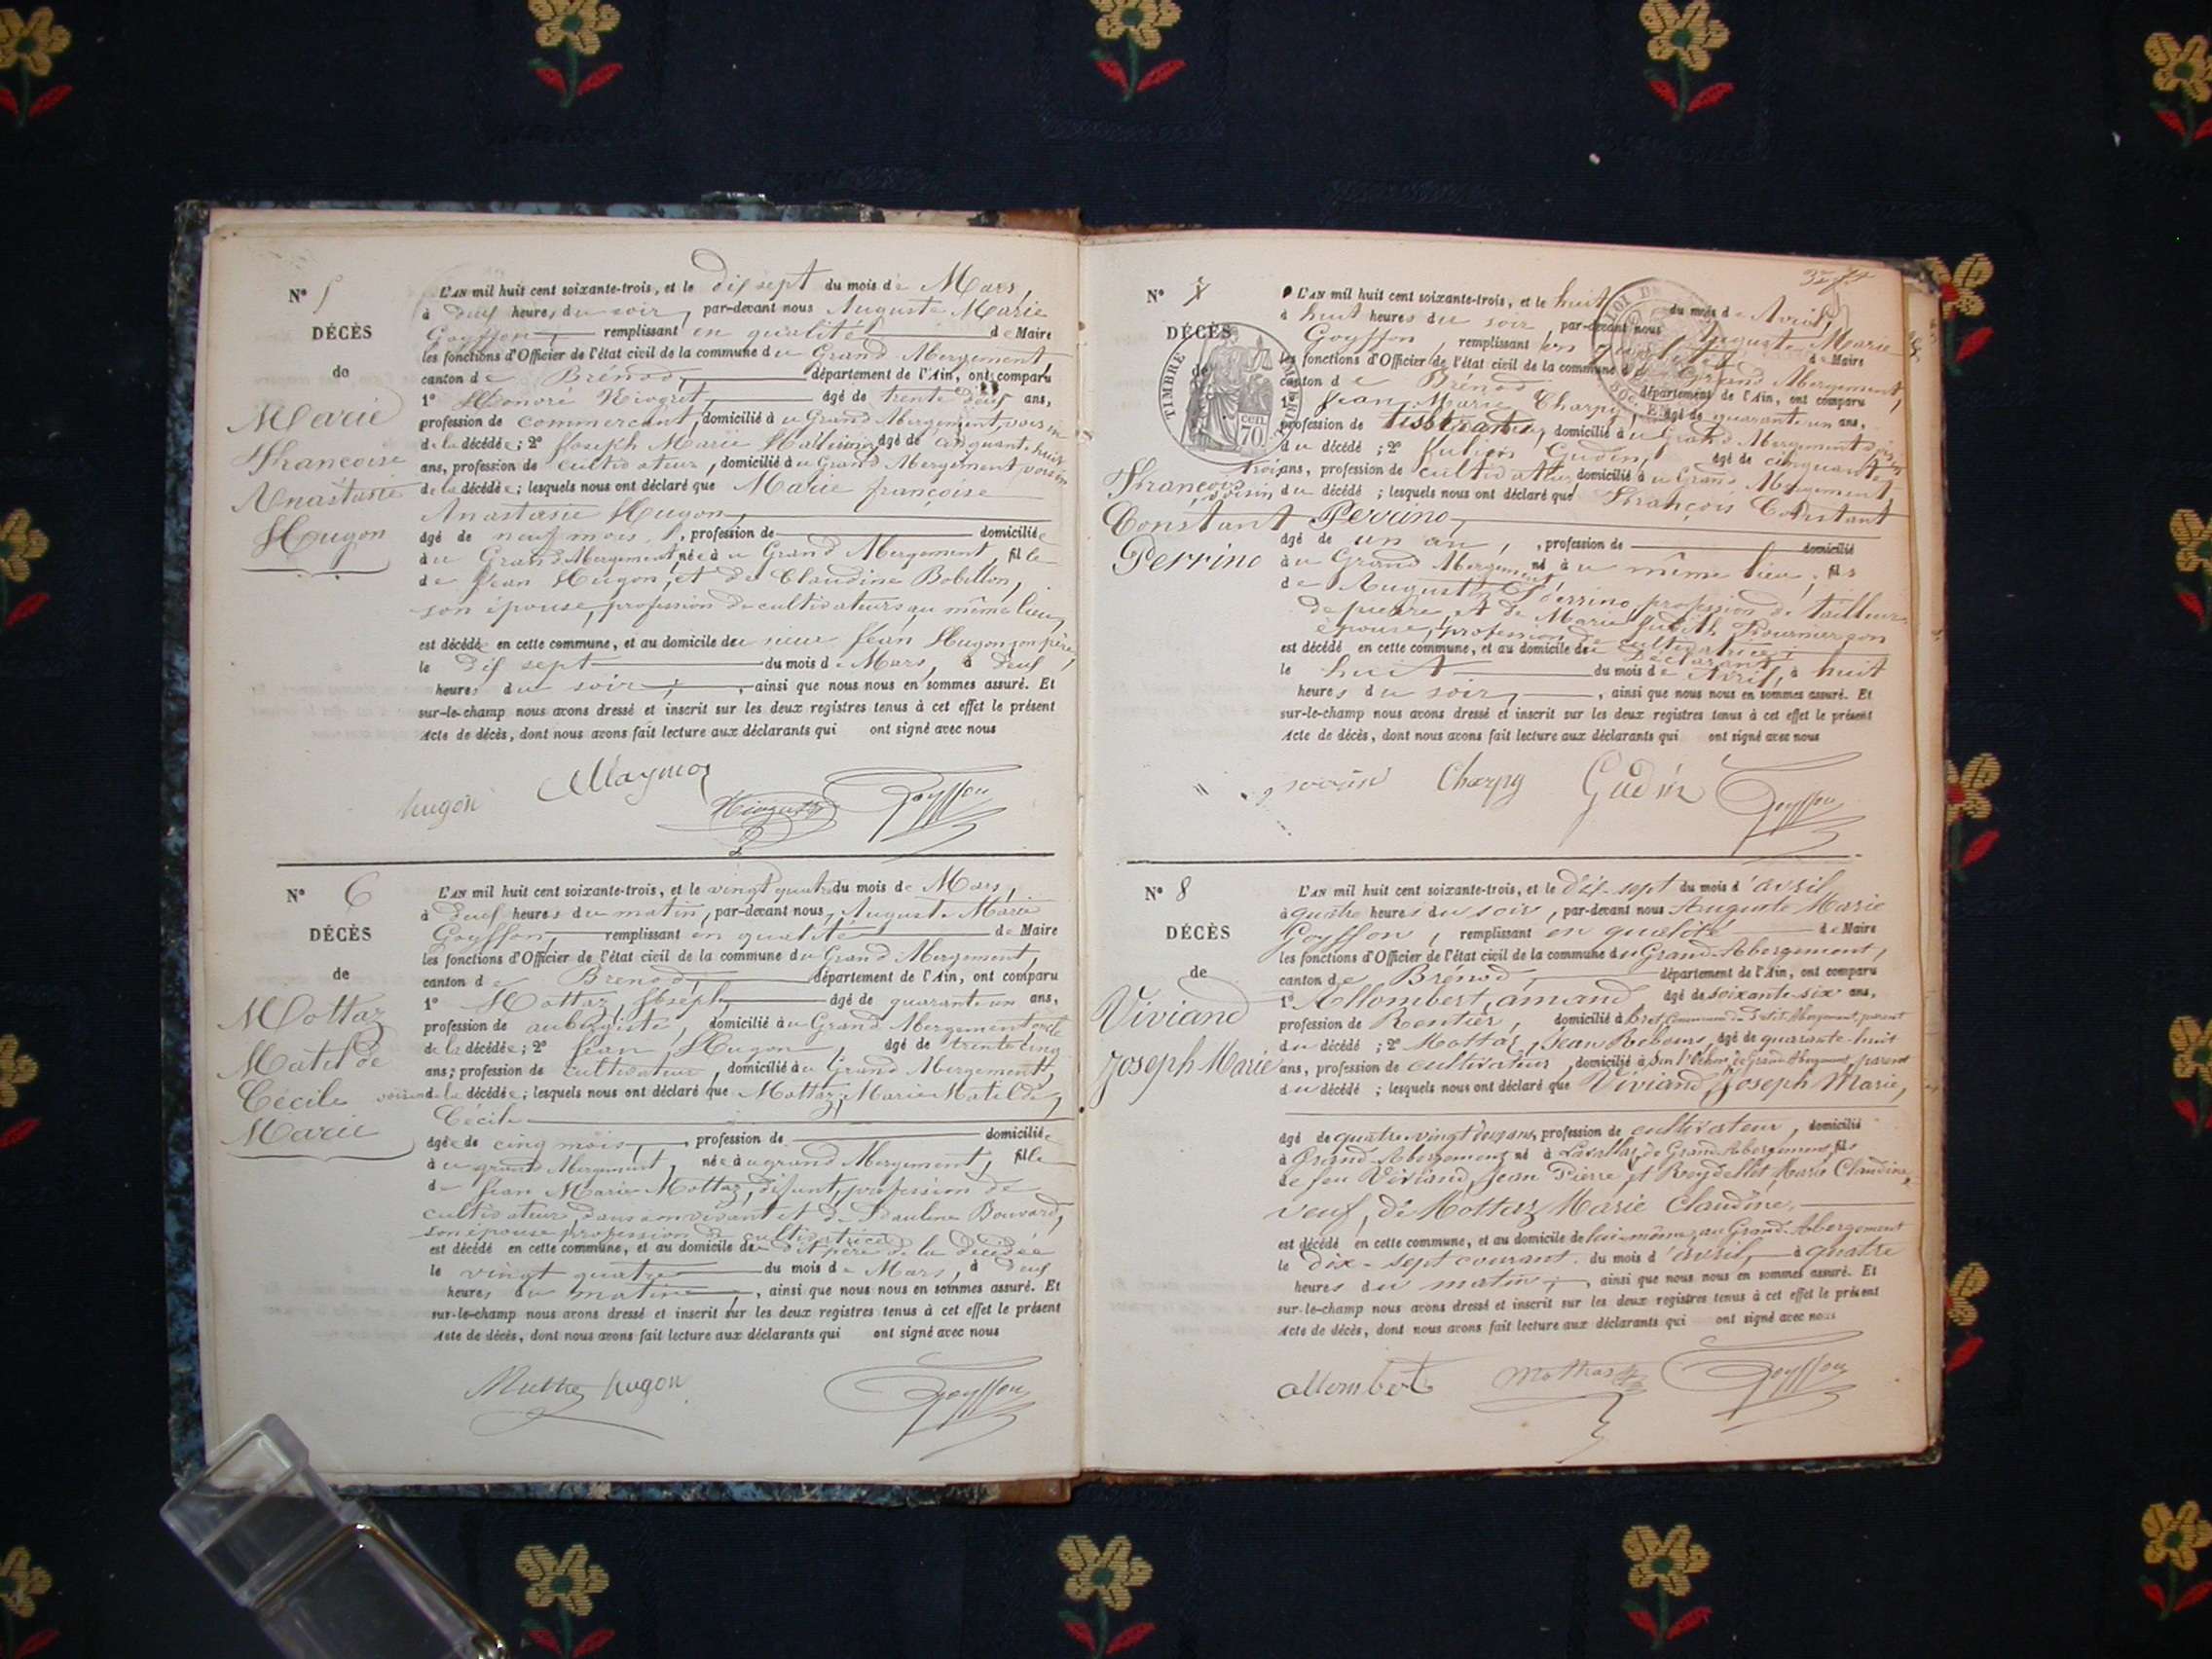 N° 5
DÉCÈS
de
Marie
Françoise
Anastasie
Hugon
L'AN mil huit cent soixante-trois, et le dix sept du mois de Mars,
à deux heures du soir, par-devant nous Auguste Marie
Goyffon, remplissant en qualité de Maire
les fonctions d'Officier de l'état civil de la commune du Grand Abergement,
canton de Brénod, département de l'Ain, ont comparu
1° Honoré âgé de trente deux ans,
profession de commerçant, domicilié au Grand Abergement, voisin
de la décédée; 2° Joseph Marie âgé de cinquante huit
ans, profession de cultivateur, domicilié au Grand Abergement, voisin
de la décédée; lesquels nous ont déclaré que Marie françoise
Anastasie Hugon,
âgé de neuf mois, profession de domiciliée
au Grand Abergement, née au Grand Abergement, fille
de Jean Hugon, et de Claudine Bobillon,
son épouse, profession de cultivateurs, au même lieu,
est décédée en cette commune, et au domicile du sieur Jean Hugon, son père,
le dix sept du mois de Mars, à deux
heures du soir, ainsi que nous nous en sommes assuré. Et
sur-le-champ nous avons dressé et inscrit sur les deux registres tenus à cet effet le présent
Acte de décès, dont nous avons fait lecture aux déclarants qui ont signé avec nous
hugon Goyffon
N° 6
DÉCÈS
de
Mottaz
Matilde
Cécile
Marie
L'AN mil huit cent soixante-trois, et le vingt quatre du mois de Mars,
à deux heures du matin, par-devant nous, Auguste Marie
Goyffon, remplissant en qualité de Maire
les fonctions d'Officier de l'état civil de la commune du Grand Abergement,
canton de Brenod, département de l'Ain, ont comparu
1° Mottaz, Joseph, âgé de quarante un ans,
profession de aubergiste, domicilié au Grand Abergement oncle
de la décédée; 2° Jean Hugon, âgé de trente cinq
ans; profession de cultivateur, domicilié au Grand Abergement,
voisin de la décédée; lesquels nous ont déclaré que Mottaz, Marie Matilde,
Cécile
âgée de cinq mois, profession de domiciliée
au grand Abergement, née au grand Abergement, fille
de Jean Marie Mottaz, défunt, profession de
cultivateur, dans son vivant et de Pauline Bouvard,
son épouse profession de cultivatrice
est décédé en cette commune, et au domicile du dit père de la décédée
le vingt quatre du mois de Mars, à deux
heures du matin, ainsi que nous nous en sommes assuré. Et
sur-le-champ nous avons dressé et inscrit sur les deux registres tenus à cet effet le présent
Acte de décès, dont nous avons fait lecture aux déclarants qui ont signé avec nous
hugon Goyffon
N° 7
DÉCÈS
de
TIMBRE
CEN.
70
François
Constant
Perrino
L'AN mil huit cent soixante-trois, et le huit du mois de Avril,
à huit heures du soir, par-devant nous Auguste Marie
Goyffon, remplissant en qualité de Maire
les fonctions d'Officier de l'état civil de la commune du Grand Abergement,
canton de Brénod département de l'Ain, ont comparu
1° Jean Marie Charpy, âgé de quarante un ans,
profession de domicilié au Grand Abergement voisin
du décédé; 2° Julien Gudin, âgé de cinquante
trois ans, profession de cultivateur, domicilié au Grand Abergement,
voisin du décédé; lesquels nous ont déclaré que François Constant
Perrino,
âgé de un an, profession de domicilié
au Grand Abergement, né au même lieu, fils
de Augustin Perrino, profession de tailleur
de pierre, et de Marie Judith Fournier son
épouse, profession de cultivatrice
est décédé en cette commune, et au domicile du déclarant,
le huit du mois de Avril, à huit
heures du soir, ainsi que nous nous en sommes assuré. Et
sur-le-champ nous avons dressé et inscrit sur les deux registres tenus à cet effet le présent
Acte de décès, dont nous avons fait lecture aux déclarants qui ont signé avec nous
Charpy Gudin Goyffon
N° 8
DÉCÈS
de
Viviand
Joseph Marie
L'AN mil huit cent soixante-trois, et le dix-sept du mois d'avril
à quatre heures du soir, par-devant nous Auguste Marie
Goyffon, remplissant en qualité de Maire
les fonctions d'Officier de l'état civil de la commune du Grand-Abergement,
canton de Brénod, département de l'Ain, ont comparu
1° Allombert, amand, âgé de soixante six ans,
profession de Rentier, domicilié à Bret, Commune du Petit Abergement, parent
du décédé; 2° Mottaz, Jean âgé de quarante-huit
ans, profession de cultivateur, domicilié à de Grand Abergement, parent
du décédé; lesquels nous ont déclaré que Viviand, Joseph Marie,
âgé de quatre-vingt deux ans, profession de cultivateur, domicilié
à Grand-Abergement né à de Grand-Abergement, fils
de feu Viviand, Jean Pierre et Reydellet, Marie Claudine,
veuf, de Mottaz Marie Claudine,
est décédé en cette commune, et au domicile de lui-même, au Grand-Abergement
le dix-sept courant du mois d'avril, à quatre
heures du matin, ainsi que nous nous en sommes assuré. Et
sur-le-champ nous avons dressé et inscrit sur les deux registres tenus à cet effet le présent
Acte de décès, dont nous avons fait lecture aux déclarants qui ont signé avec nous
allombert Goyffon